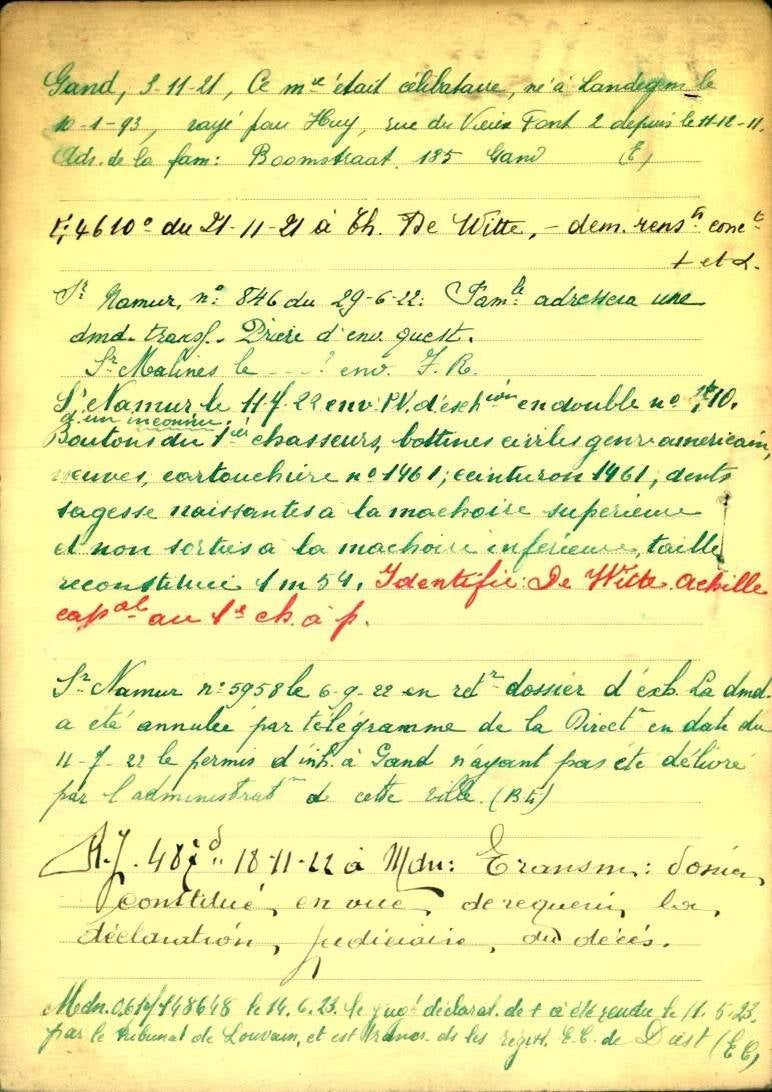 Gand, 3-11-21, Ce mre était célibataire, né à Landegem le
10-1-93, rayé pour Huy, rue du Vieux Pont 2 depuis le 11-12-11.
Adr. de la fam: Boomstraat 185 Gand (E)
4610c du 21-11-21 à Th. De Witte, - dem. rensts conct
+ et d.
Sr Namur, n° 846 du 29-6-22: Famle adressera une
dmd. transf. Prière d'env. quest.
Sr Malines le - - - ? env. F. R.
Sr Namur, le 11-7-22 env. P.V. d'exhion en double n° 10.
d'un inconnu:
Boutons du 1ier chasseurs, bottines civiles genre américain,
neuves, cartouchière n° 1461; ceinturon 1461; dents
sagesse naissantes à la machoire supérieure
et non sorties à la machoire inférieure, taille
reconstituée 1 m 54. Identifié: De Witte Achille
capal au 1e ch. à p.
Sr Namur n° 5958 le 6-9-22 en retr dossier d'exh. La dmd.
a été annulée par télégramme de la Directn en date du
11-7-22 le permis d'inh. à Gand n'ayant pas été délivré
par l'administratn de cette ville.
R.J. 487 d" 18-11-22 à Mdn: Transm: dossier
constitué en vue de requérir la
déclaration judiciaire du décès.
Mdn. 148648 le 14.6.23. le jugt déclarat. de + a été rendu le 11.5.23.
par le tribunal de Louvain, et est transc. ds les régist. E.C. de Diest (EC)